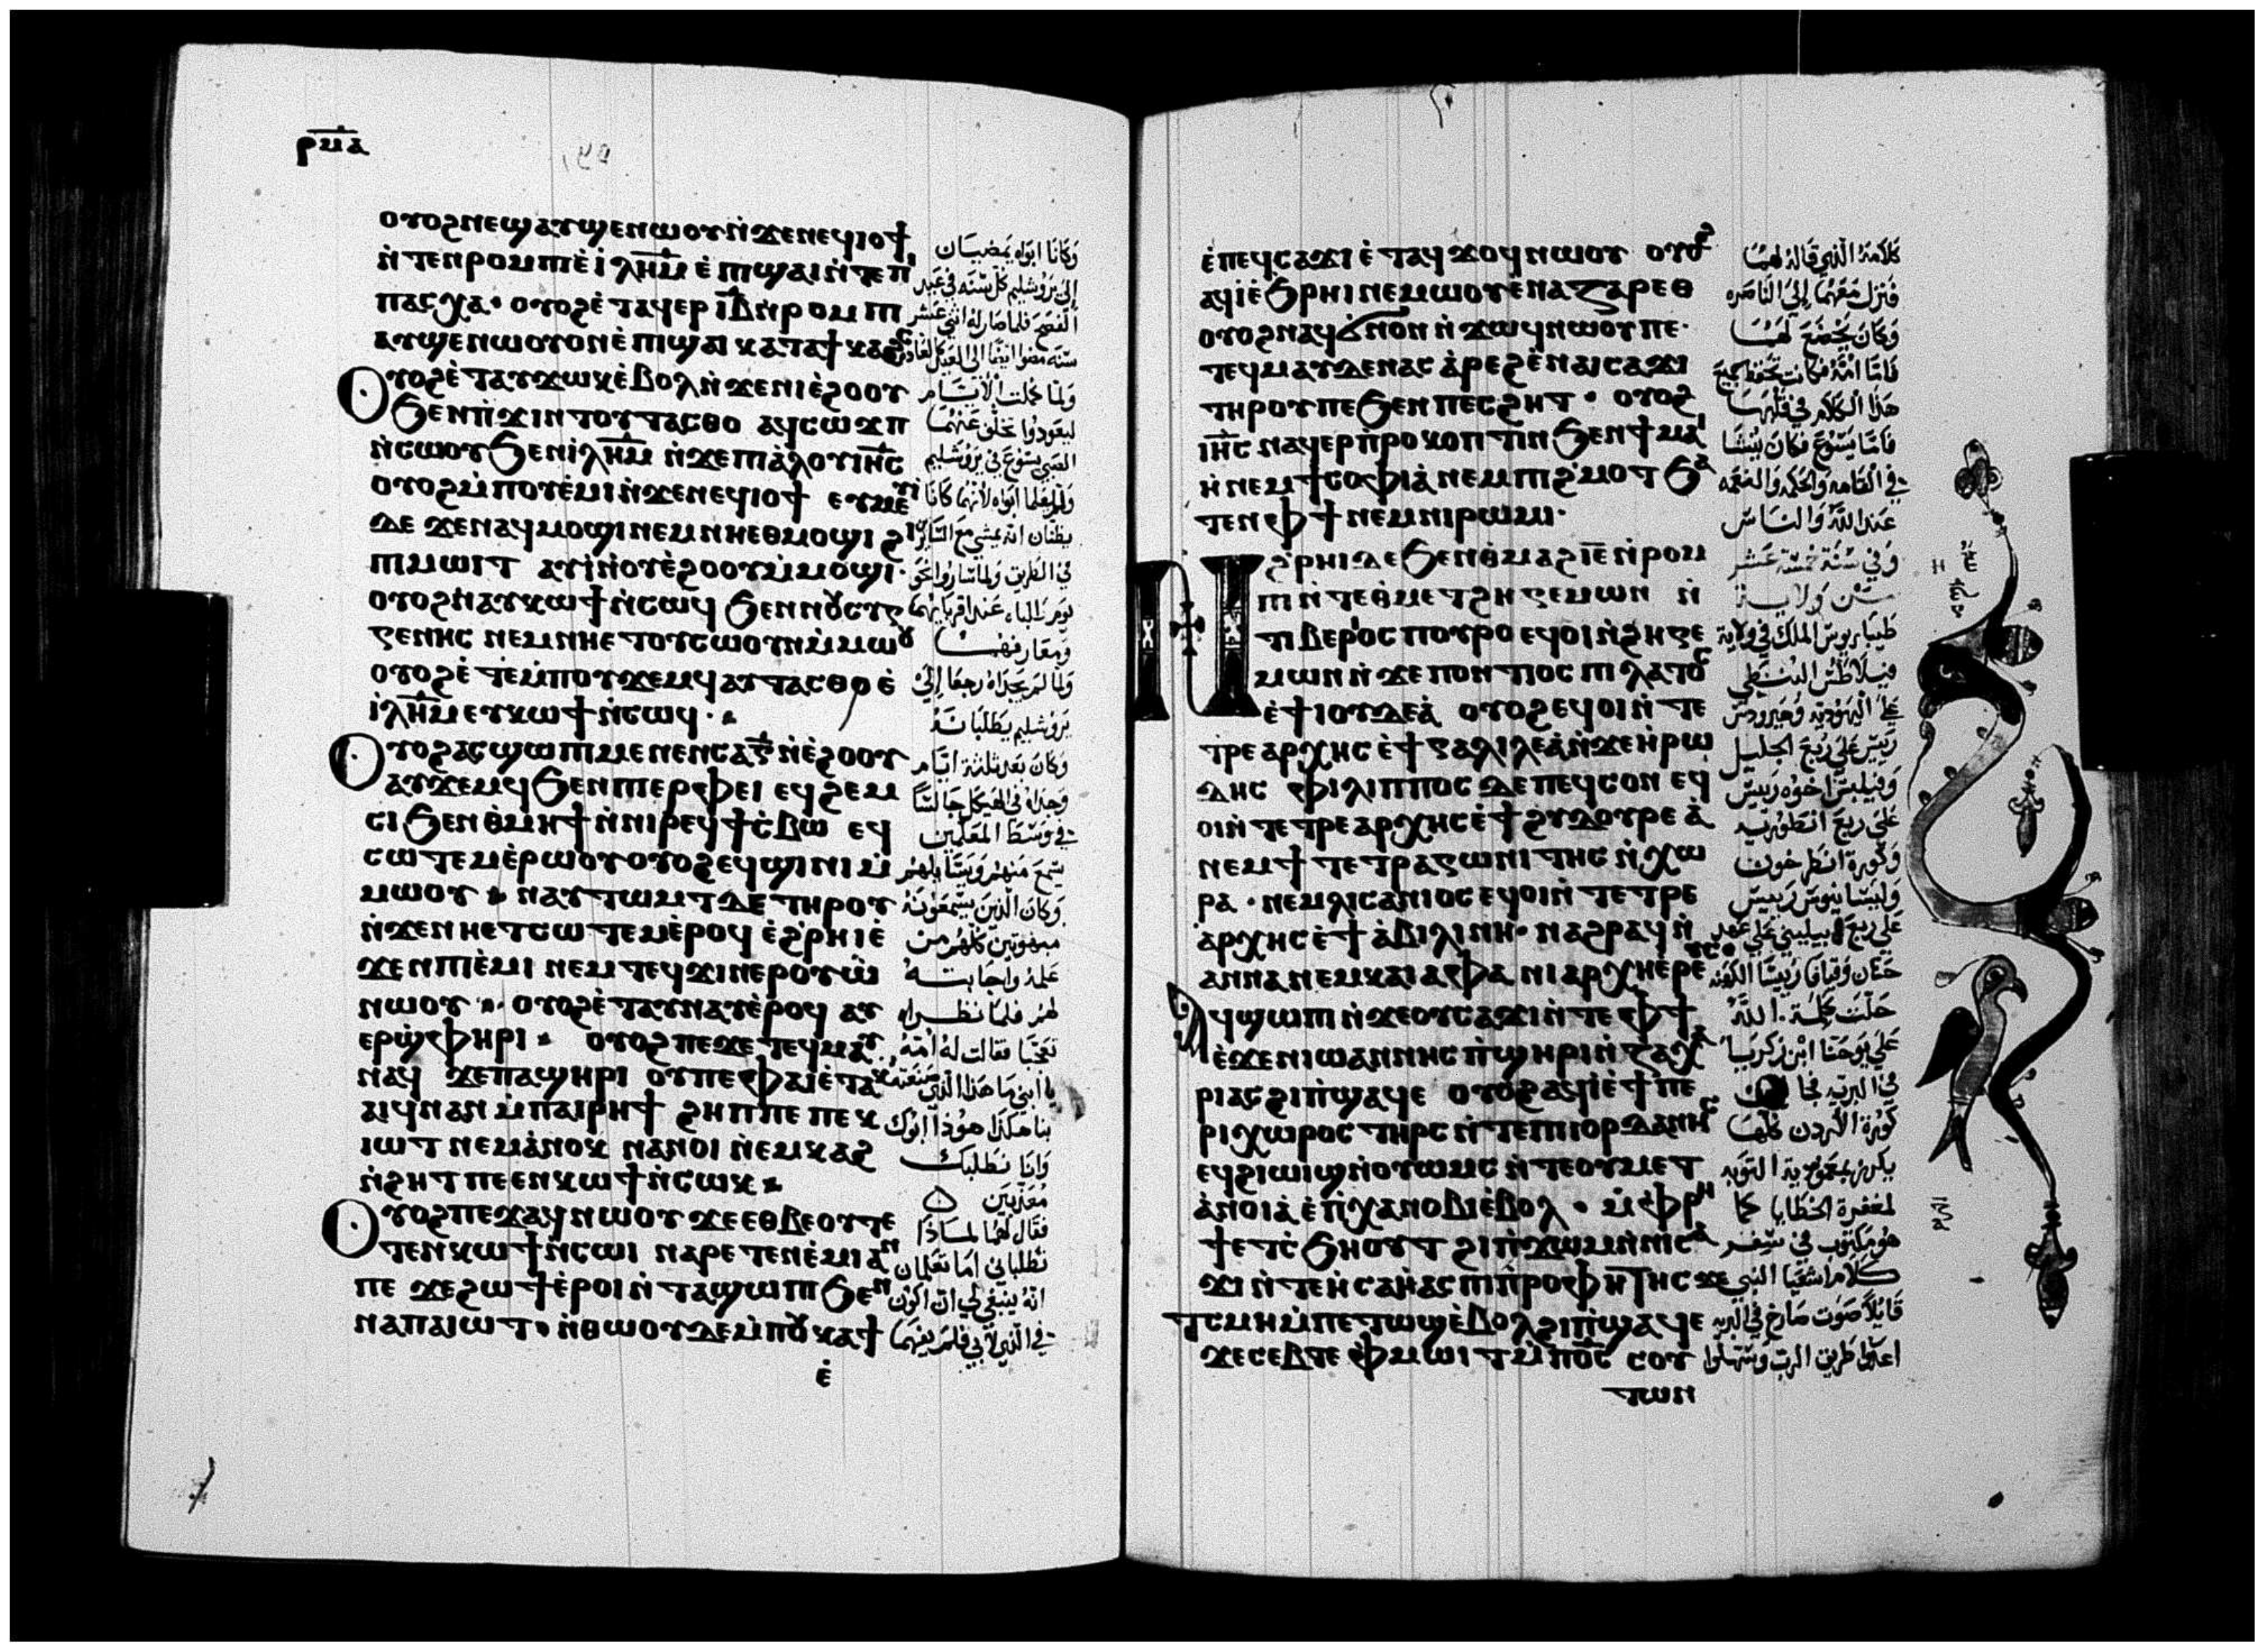 ⲣⲙⲁ
ⲟⲩⲟϩ ⲛⲉϣⲁⲩϣⲉⲛⲱⲟⲩ ⲛ̀ϫⲉⲛⲉϥⲓⲟϯ
ⲛ̀ⲧⲉⲛⲣⲟⲙⲡⲓ ⲉ̀ⲓ̀ⲗ̅ⲏ̅ⲙ̅ ⲉ̀ⲡϣⲁⲓ ⲛ̀ⲧⲉⲡⲓ
ⲡⲁⲥⲭⲁ · ⲟⲩⲟϩ ⲉ̀ⲧⲁϥⲉⲣ ⲓ̅ⲃ̅ ⲛ̀ⲣⲟⲙⲡⲓ
ⲁⲩϣⲉⲛⲱⲟⲩ ⲟⲛ ⲉ̀ⲡϣⲁⲓ ⲕⲁⲧⲁϯⲕⲁϩⲥ
ⲟⲩⲟϩ ⲉ̀ⲧⲁⲩϫⲱⲕ ⲉ̀ⲃⲟⲗ ⲛ̀ϫⲉⲛⲓⲉ̀ϩⲟⲟⲩ
ϧⲉⲛⲡ̀ϫⲓⲛⲧⲟⲩⲧⲁⲥⲑⲟ ⲁϥⲥⲱϫⲡ
ⲛ̀ⲥⲱⲟⲩ ϧⲉⲛⲓ̀ⲗ̅ⲏ̅ⲙ̅ ⲛ̀ϫⲉⲡⲓⲁ̀ⲗⲟⲩ ⲓⲏ̅ⲥ̅
ⲟⲩⲟϩ ⲙ̀ⲡⲟⲩⲉ̀ⲙⲓ ⲛ̀ϫⲉⲛⲉϥⲓⲟϯ ⲉⲩⲙⲉⲩⲓ
ⲇⲉ ϫⲉⲛⲁϥⲙⲟϣⲓ ⲛⲉⲙⲛⲏⲉⲑⲙⲟϣⲓ ϩⲓ
ⲡⲙⲱⲓⲧ ⲁⲩⲓ̀ ⲛ̀ⲟⲩⲉ̀ϩⲟⲟⲩ ⲙ̀ⲙⲟϣⲓ ·
ⲟⲩⲟϩ ⲛⲁⲩⲕⲱϯ ⲛ̀ⲥⲱϥ ϧⲉⲛⲛⲟⲩⲥⲩⲅ
ⲅⲉⲛⲏⲥ ⲛⲉⲙⲛⲏⲉⲧⲟⲩⲥⲱⲟⲩⲛ ⲙ̀ⲙⲱⲟⲩ
ⲟⲩⲟϩ ⲉ̀ⲧⲉⲙ̀ⲡⲟⲩϫⲉⲙϥ ⲁⲩⲧⲁⲥⲑⲟ ⲉ̀
ⲓ̀ⲗ̅ⲏ̅ⲙ̅ ⲉⲩⲕⲱϯ ⲛ̀ⲥⲱϥ ·
ⲟⲩⲟϩ ⲁⲥϣⲱⲡⲓ ⲙⲉⲛⲉⲛⲥⲁ ⲅ̅ ⲛ̀ⲉ̀ϩⲟⲟⲩ
ⲁⲩϫⲉⲙϥ ϧⲉⲛⲡⲓⲉⲣⲫⲉⲓ ⲉϥϩⲉⲙ
ⲥⲓ ϧⲉⲛⲑⲙⲏϯ ⲛ̀ⲛⲓⲣⲉϥϯⲥ̀ⲃⲱ ⲉϥ
ⲥⲱⲧⲉⲙ ⲉ̀ⲣⲱⲟⲩ ⲟⲩⲟϩ ⲉϥϣⲓⲛⲓ ⲙ̀
ⲙⲱⲟⲩ · ⲛⲁⲩⲧⲱⲙⲧ ⲇⲉ ⲧⲏⲣⲟⲩ
ⲛ̀ϫⲉⲛⲏⲉⲧⲥⲱⲧⲉⲙ ⲉ̀ⲣⲟϥ ⲉ̀ϩ̀ⲣⲏⲓ ⲉ̀
ϫⲉⲛⲡⲓⲉ̀ⲙⲓ ⲛⲉⲙⲧⲉϥϫⲓⲛⲉⲣⲟⲩⲱ̀
ⲛⲱⲟⲩ · ⲟⲩⲟϩ ⲉ̀ⲧⲁⲩⲛⲁⲩ ⲉ̀ⲣⲟϥ ⲁⲩ
ⲉⲣϣ̀ⲫⲏⲣⲓ · ⲟⲩⲟϩ ⲡⲉϫⲉⲧⲉϥⲙⲁⲩ
ⲛⲁϥ ϫⲉⲡⲁϣⲏⲣⲓ ⲟⲩⲡⲉⲫⲁⲓ ⲉ̀ⲧⲁⲕ
ⲁⲓϥ ⲛⲁⲛ ⲙ̀ⲡⲁⲓⲣⲏϯ ϩⲏⲡⲡⲉ ⲡⲉⲕ
ⲓⲱⲧ ⲛⲉⲙⲁ̀ⲛⲟⲕ ⲛⲁⲛⲟⲓ ⲛ̀ⲉⲙⲕⲁϩ
ⲛ̀ϩⲏⲧ ⲡⲉ ⲉⲛⲕⲱϯ ⲛ̀ⲥⲱⲕ ·
ⲟⲩⲟϩ ⲡⲉϫⲁϥ ⲛⲱⲟⲩ ϫⲉⲉⲑⲃⲉⲟⲩ ⲧⲉ
ⲧⲉⲛⲕⲱϯ ⲛ̀ⲥⲱⲓ ⲛⲁⲣⲉⲧⲉⲛⲉ̀ⲙⲓ ⲁⲛ
ⲡⲉ ϫⲉϩⲱϯ ⲉ̀ⲣⲟⲓ ⲛ̀ⲧⲁϣⲱⲡⲓ ϧⲉⲛ
ⲛⲁⲡⲁⲓⲱⲧ · ⲛ̀ⲑⲱⲟⲩ ⲇⲉ ⲙ̀ⲡⲟⲩⲕⲁϯ
ⲉ̀
وكانا ابواه يمضيان
الى يروشليم كل سنه في عيد
الفصح فلما صار له اثنتي عشر
سنه مضوا ايضا الى العيد كالعاده
ولما كملت الايام
ليعودوا تخلف عنهما
الصبي يسوع في يروشليم
ولم يعلما ابواه لانهما كانا
يظنان انه يمشي مع السايرين
في الطريق ولما ساروا نحو
يوم طلباه عند اقربايهما
ومعارفهما
ولما لم يجداه رجعا الى
يروشليم يطلبانه
وكان بعد ثلثة ايام
وجداه في الهيكل جالسا
في وسط المعلمين
يسمع منهم ويسالهم
وكان الذين يسمعونه
مبهوتين كلهم من
علمه واجابته
لهم فلما نظراه
تعجبا فقالت له امه
يا ابني ما هذا الذي صنعته
بنا هكذا هوذا ابوك
وانا نطلبك
معذبين
فقال لهما لماذا
تطلباني اما تعلمان
انه ينبغي لي ان اكون
في الذي لابي فلم يفهما
ⲉ̀ⲡⲉϥⲥⲁϫⲓ ⲉ̀ⲧⲁϥϫⲟϥ ⲛⲱⲟⲩ ⲟⲩⲟϩ
ⲁϥⲓ̀ ⲉ̀ϧⲣⲏⲓ ⲛⲉⲙⲱⲟⲩ ⲉ̀ⲛⲁⲍⲁⲣⲉⲑ
ⲟⲩⲟϩ ⲛⲁϥϭ̀ⲛⲟⲛ ⲛ̀ϫⲱϥ ⲛⲱⲟⲩ ⲡⲉ ·
ⲧⲉϥⲙⲁⲩ ⲇⲉ ⲛⲁⲥⲁ̀ⲣⲉϩ ⲉ̀ⲛⲁⲓⲥⲁϫⲓ
ⲧⲏⲣⲟⲩ ⲡⲉ ϧⲉⲛⲡⲉⲥϩⲏⲧ · ⲟⲩⲟϩ
ⲓⲏ̅ⲥ̅ ⲛⲁϥⲉⲣⲡ̀ⲣⲟⲕⲟⲡⲧⲓⲛ ϧⲉⲛϯⲙⲁⲓ
ⲏ̀ ⲛⲉⲙϯⲥⲟⲫⲓⲁ̀ ⲛⲉⲙⲡⲓϩ̀ⲙⲟⲧ ϧⲁ
ⲧⲉⲛⲫϯ ⲛⲉⲙⲛⲓⲣⲱⲙⲓ ·
ⲛ̀ϩ̀ⲣⲏⲓ ⲇⲉ ϧⲉⲛⲑ̀ⲙⲁϩ ⲓ̅ⲉ̅ ⲛ̀ⲣⲟⲙ
ⲡⲓ ⲛ̀ⲧⲉⲑⲙⲉⲧϩⲏⲅⲉⲙⲱⲛ ⲛ̀
ⲧⲓⲃⲉⲣⲓⲟⲥ ⲡⲟⲩⲣⲟ ⲉϥⲟⲓ ⲛ̀ϩⲏⲅⲉ
ⲙⲱⲛ ⲛ̀ϫⲉⲡⲟⲛⲧⲓⲟⲥ ⲡⲓⲗⲁⲧⲟⲥ
ⲉ̀ϯⲓⲟⲩⲇⲉⲁ̀ ⲟⲩⲟϩ ⲉϥⲟⲓ ⲛ̀ⲧⲉ
ⲧⲣⲉⲁⲣⲭⲏⲥ ⲉ̀ϯⲅⲁⲗⲓⲗⲉⲁ̀ ⲛ̀ϫⲉⲏ̀ⲣⲱ
ⲇⲏⲥ ⲫⲓⲗⲓⲡⲡⲟⲥ ⲇⲉ ⲡⲉϥⲥⲟⲛ ⲉϥ
ⲟⲓ ⲛ̀ⲧⲉⲧⲣⲉⲁⲣⲭⲏⲥ ⲉ̀ϯϩⲩⲇⲟⲩⲣⲉⲁ̀
ⲛⲉⲙϯⲧⲉⲧⲣⲁⲅⲱⲛⲓⲧⲏⲥ ⲛ̀ⲭⲱ
ⲣⲁ · ⲛⲉⲙⲗⲓⲥⲁⲛⲓⲟⲥ ⲉϥⲟⲓ ⲛ̀ⲧⲉⲧⲣⲉ
ⲁ̀ⲣⲭⲏⲥ ⲉ̀ϯⲁ̀ⲃⲓⲗⲓⲛⲏ · ⲛⲁϩⲣⲁϥ ⲛ̀
ⲁⲛⲛⲁ ⲛⲉⲙⲕⲁⲓⲁⲫⲁ ⲛⲓⲁⲣⲭⲏⲉ̀ⲣⲉⲩⲥ
ⲁϥϣⲱⲡⲓ ⲛ̀ϫⲉⲟⲩⲥⲁϫⲓ ⲛ̀ⲧⲉⲫϯ
ⲉ̀ϫⲉⲛⲓⲱⲁⲛⲛⲏⲥ ⲡ̀ϣⲏⲣⲓ ⲛ̀ⲍⲁⲭⲁ
ⲣⲓⲁⲥ ϩⲓⲡ̀ϣⲁϥⲉ ⲟⲩⲟϩ ⲁϥⲓ̀ ⲉ̀ϯⲡⲉ
ⲣⲓⲭⲱⲣⲟⲥ ⲧⲏⲣⲥ ⲛ̀ⲧⲉⲡⲓⲟⲣⲇⲁⲛⲏⲥ
ⲉϥϩⲓⲱⲓϣ ⲛ̀ⲟⲩⲱⲙⲥ ⲛ̀ⲧⲉⲟⲩⲙⲉⲧ
ⲁ̀ⲛⲟⲓⲁ̀ ⲉ̀ⲡ̀ⲭⲁⲛⲟⲃⲓ ⲉ̀ⲃⲟⲗ · ⲙ̀ⲫⲣⲏ
ϯ ⲉⲧⲥ̀ϧⲏⲟⲩⲧ ϩⲓⲡ̀ϫⲱⲙ ⲛ̀ⲛⲓⲥⲁ
ϫⲓ ⲛ̀ⲧⲉⲏ̀ⲥⲁⲏ̀ⲁⲥ ⲡⲓⲡ̀ⲣⲟⲫⲏⲧⲏⲥ ϫⲉ
ⲧⲥⲙⲏ ⲙ̀ⲡⲉⲧⲱϣ ⲉ̀ⲃⲟⲗ ϩⲓⲡ̀ϣⲁϥⲉ
ϫⲉⲥⲉⲃⲧⲉ ⲫⲙⲱⲓⲧ ⲙ̀ⲡⲟ̅ⲥ̅ ⲥⲟⲩ
ⲧⲱⲛ
كلامه الذي قاله لهما
فنزل معهما الى الناصره
وكان يخضع لهما
فاما امه فكانت تحفظ جميع
هذا الكلام في قلبها
فاما يسوع فكان ينشا
في القامه والحكمه والنعمه
عند الله والناس
وفي سنة خمسة عشر
من ولاية
طيباريوس الملك في ولاية
فيلاطس البنطي
على اليهوديه وهيرودس
رييس على ربع الجليل
وفيلبس اخوه رييس
على ربع انطوريه
وكورة انطرخون
وليسانيوس رييس
على ربع ابيليني على عهد
حنان وقيافا رييسا الكهنه
حلت كلمة الله
على يوحنا ابن زكريا
في البريه فجا
كورة الاردن كلها
يكرز بمعمودية التوبه
لمغفرة الخطايا كما
هو مكتوب في سفر
كلام اشعيا النبي
قايلا صوت صارخ في البريه
اعدوا طريق الرب وسهلوا